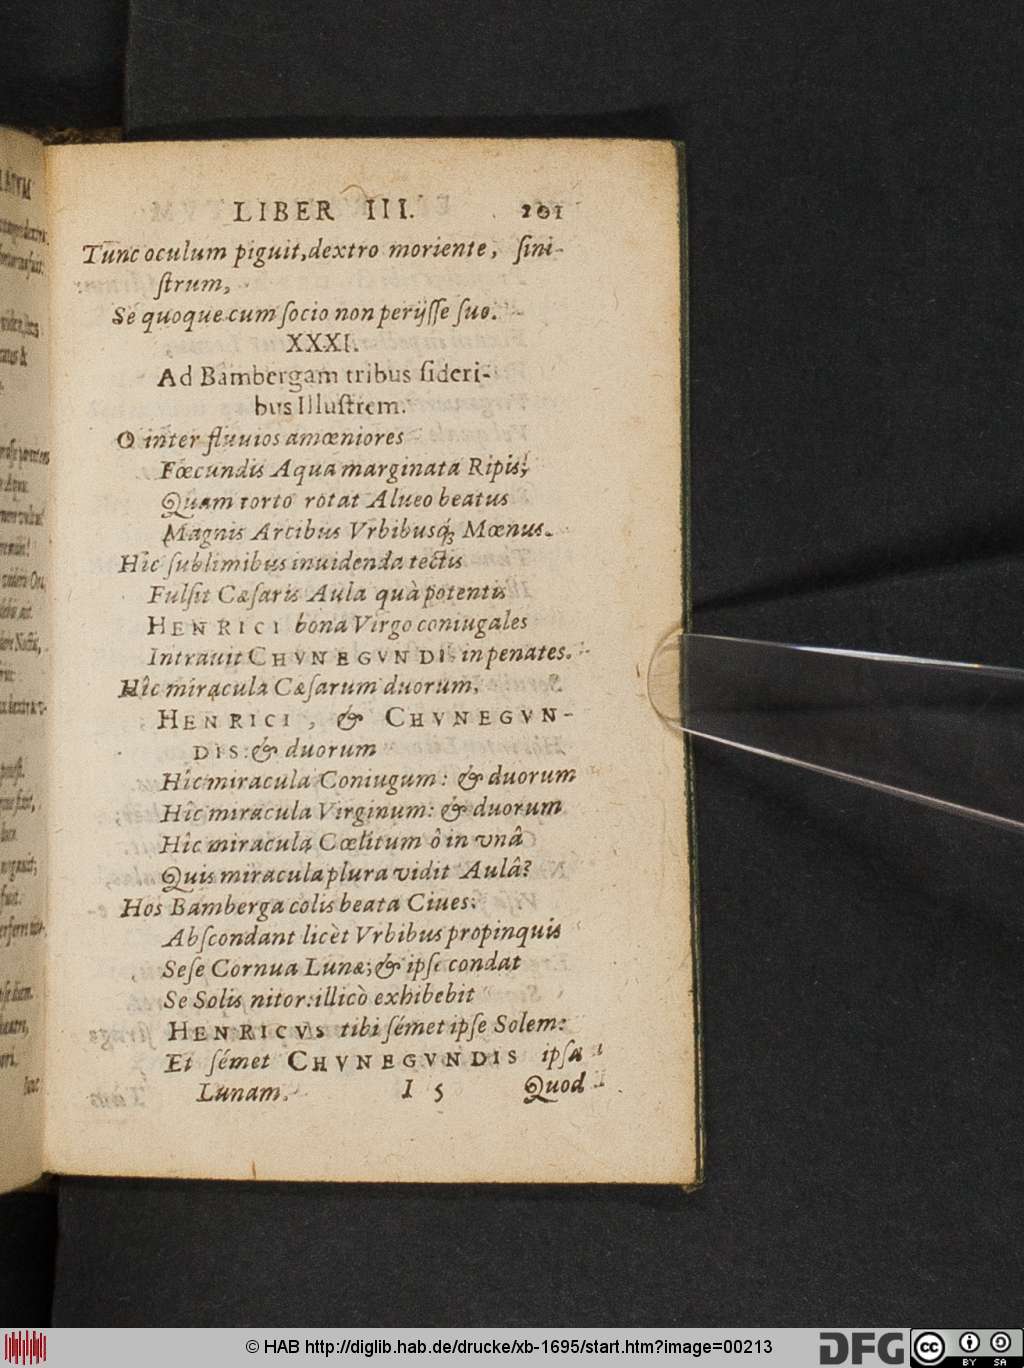 LIBER III. 201
Tunc oculum piguit, dextro moriente, ſini-
ſtrum,
Sé quoque cum ſocio non perijſſe ſuo.
XXXI.
Ad Bambergam tribus ſideri-
bus Illuſtrem.
O inter fluuios amœniores
Fœcundis Aqua marginata Ripis,
Quam torto rotat Alueo beatus
Magnis Arcibus Vrbibusq́; Mœnus.
Hîc ſublimibus inuidenda tectis
Fulſit Cæſaris Aula quà potentis
HENRICI bona Virgo coniugales
Intrauit CHVNEGVNDIS in penates.
Hîc miracula Cæſarum duorum,
HENRICI, & CHVNEGVN-
DIS: & duorum
Hîc miracula Coniugum: & duorum
Hîc miracula Virginum: & duorum
Hîc miracula Cœlitum ô in vnâ
Quis miracula plura vidit Aulâ?
Hos Bamberga colis beata Ciues:
Abſcondant licèt Vrbibus propinquis
Seſe Cornua Lunæ; & ipſe condat
Se Solis nitor: illicò exhibebit
HENRICVS tibi ſémet ipſe Solem:
Et ſémet CHVNEGVNDIS ipſa
Lunam. I 5 Quod
© HAB http://diglib.hab.de/drucke/xb-1695/start.htm?image=00213
DFG
cc BY SA